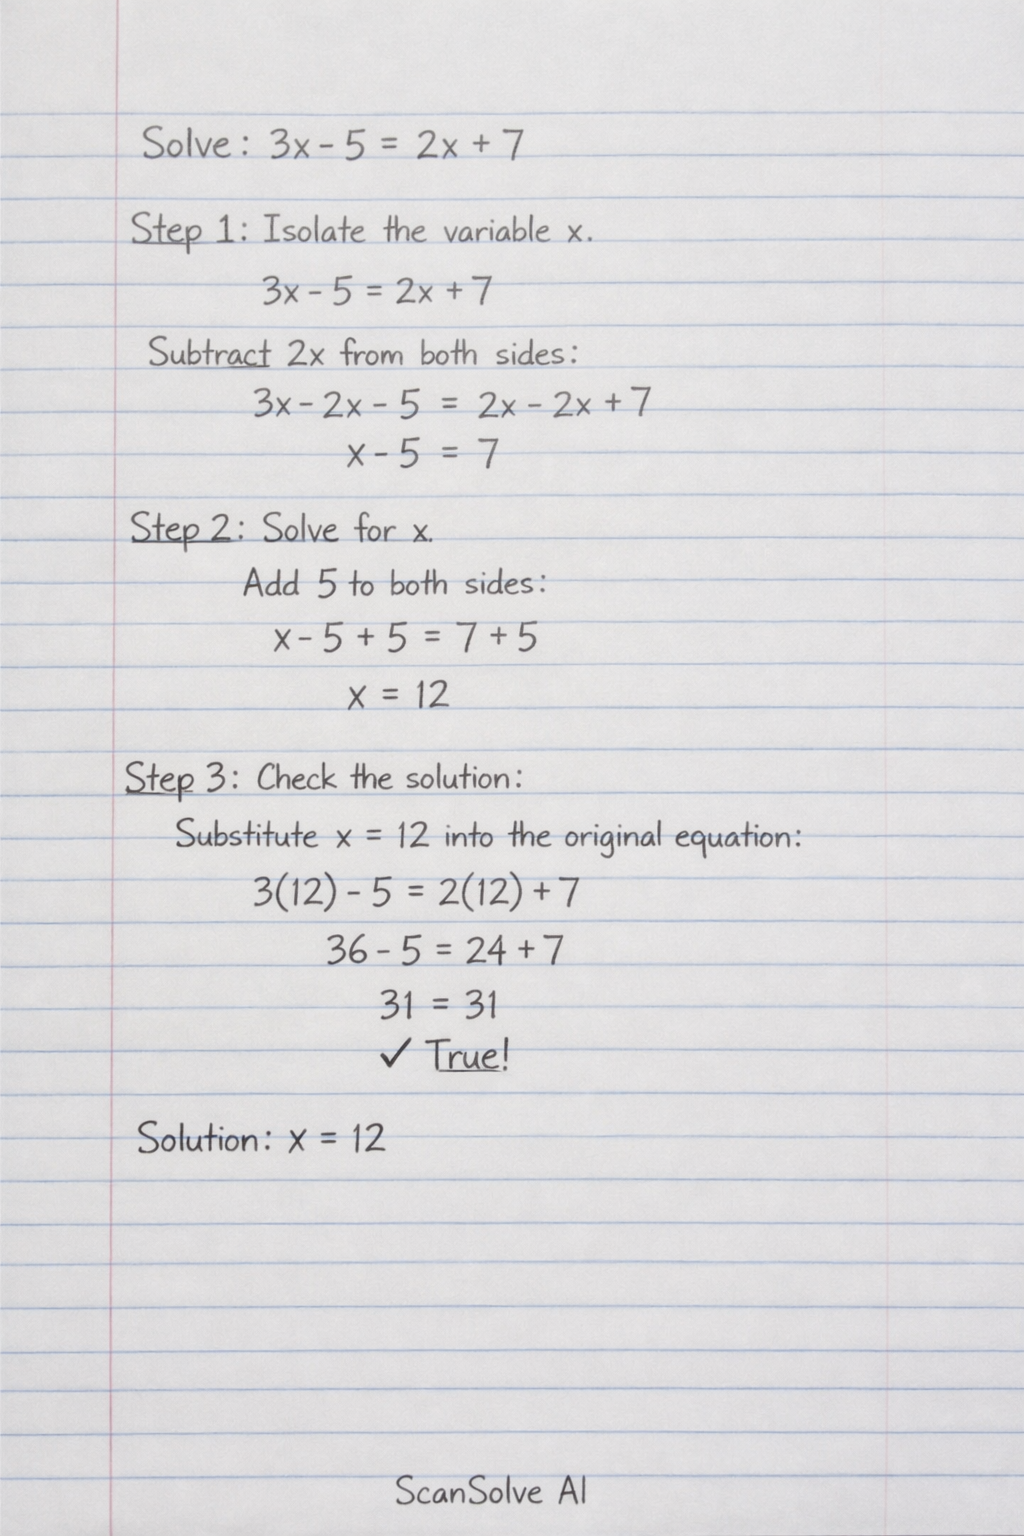 Solve: 3x - 5 = 2x + 7
Step 1: Isolate the variable x.
3x - 5 = 2x + 7
Subtract 2x from both sides:
3x - 2x - 5 = 2x - 2x + 7
x - 5 = 7
Step 2: Solve for x.
Add 5 to both sides:
x - 5 + 5 = 7 + 5
x = 12
Step 3: Check the solution:
Substitute x = 12 into the original equation:
3(12) - 5 = 2(12) + 7
36 - 5 = 24 + 7
31 = 31
✓ True!
Solution: x = 12
ScanSolve AI